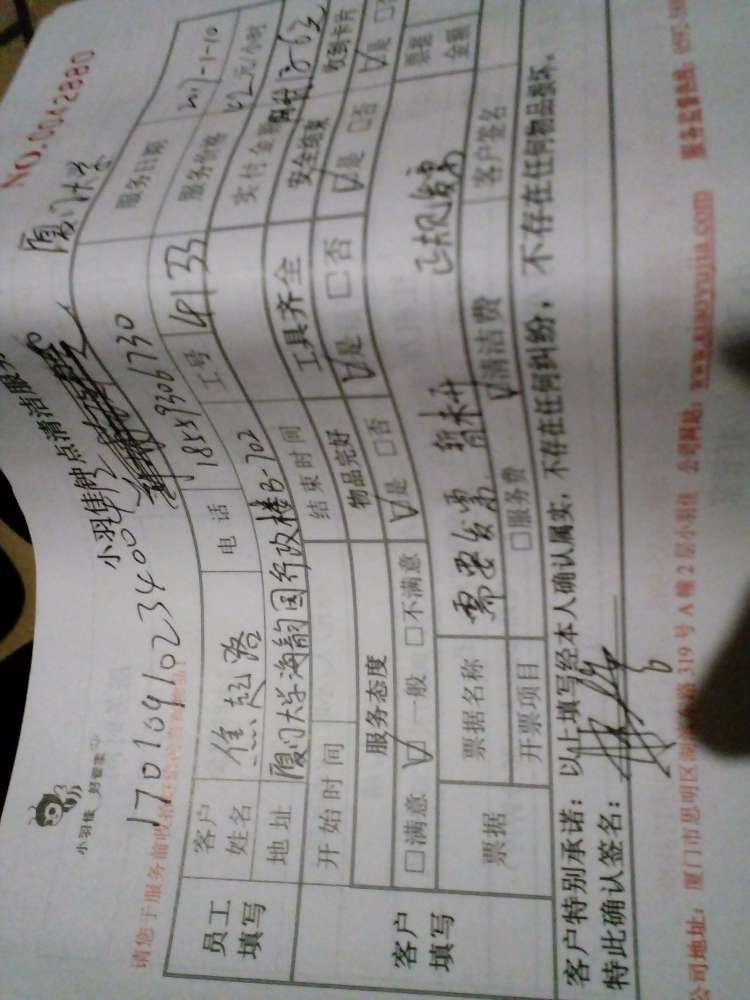 小羽佳
NO.0042880
小羽佳钟点清洁服务
厦门大学
170109102340004
请您于服务前收
员工填写
客户姓名 焦起路 电话 18559306730 工号 4133 服务日期 2017-1-10
地址 厦门大学海韵园行政楼B-702 服务价格 42元/小时
开始时间 结束时间 实付金额
客户填写
服务态度 物品完好 工具齐全 安全结束 收到卡片
□满意 ☑一般 □不满意 ☑是 □否 ☑是 □否 ☑是 □否 ☑是
票据 票据名称 需要发票 暂未开 正规发票 票据金额
开票项目 □服务费 ☑清洁费 客户签名
客户特别承诺：以上填写经本人确认属实，不存在任何纠纷，不存在任何物品损坏。
特此确认签名：
公司地址：厦门市思明区湖滨 路 319 号 A 幢 2 层小羽佳 公司网站：www.xiaoyujia.com 服务监督热线：0592-